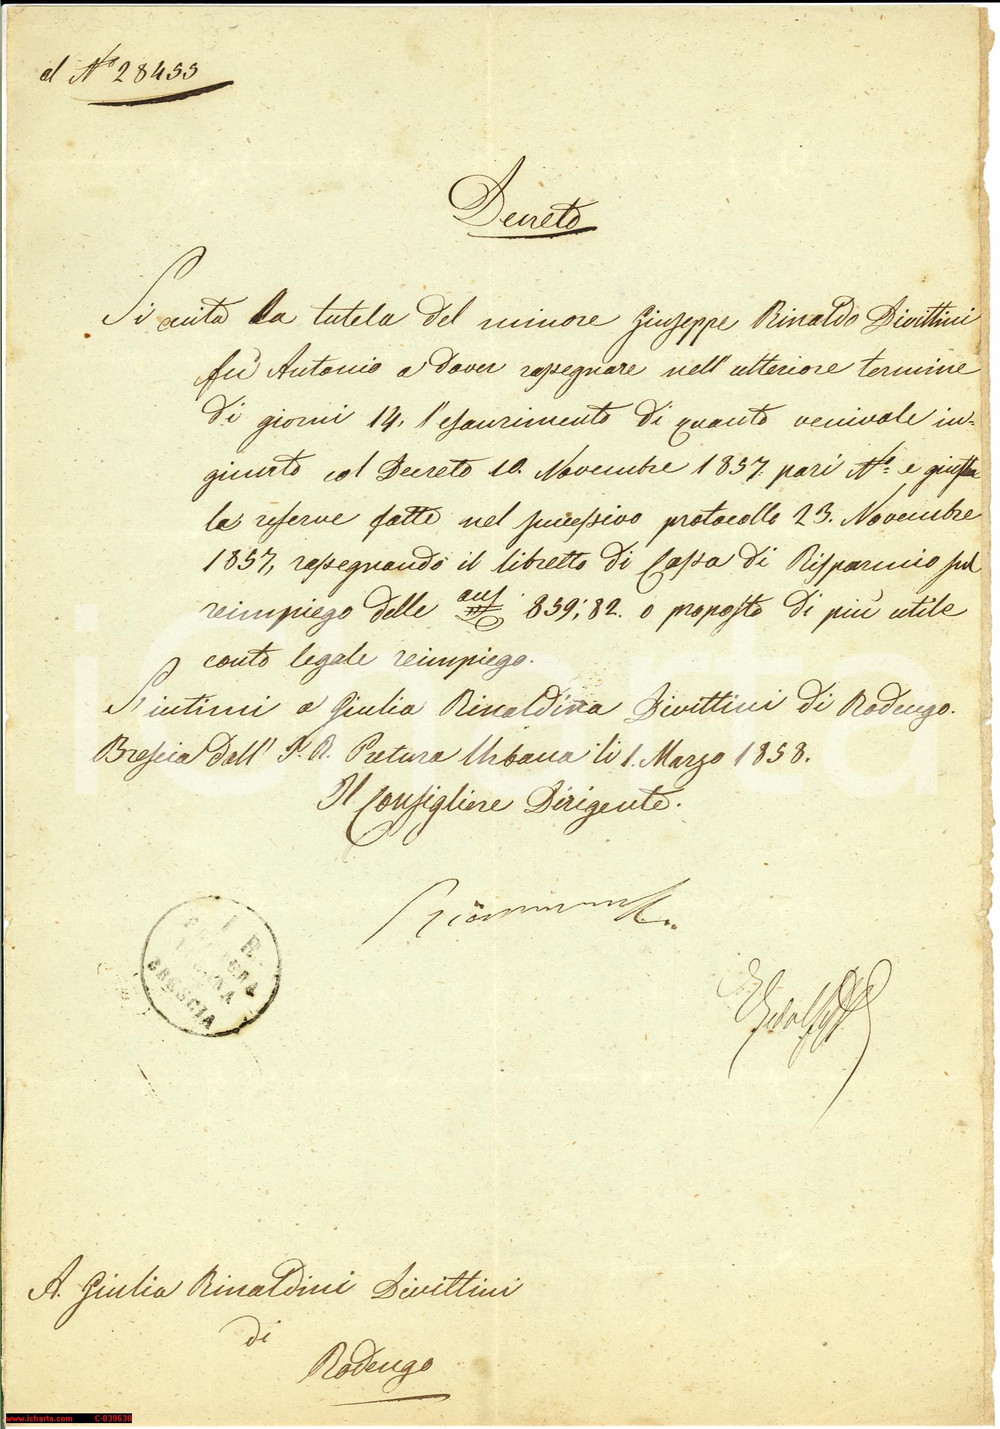 al N.° 28455
Decreto
Si eccita la tutela del minore Giuseppe Rinaldo Divittini
fu Antonio a dover rassegnare nell'ulteriore termine
di giorni 14, l'esaurimento di quanto venivale in=
giunto col Decreto 10. Novembre 1857. pari N.° e giusta
le riserve fatte nel successivo protocollo 23. Novembre
1857, rassegnando il libretto di Cassa di Risparmio sul
reimpiego delle aus. 859:82. o proposta di più utile
conto legale reimpiego.
S'intimi a Giulia Rinaldina Divittini di Rodengo.
Brescia Dall' I. R. Pretura Urbana li 1. Marzo 1858.
Il Consigliere Dirigente.
I. R.
PRETURA
URBANA
BRESCIA
A. Giulia Rinaldini Divittini
di
Rodengo
www.icharta.com C-039630